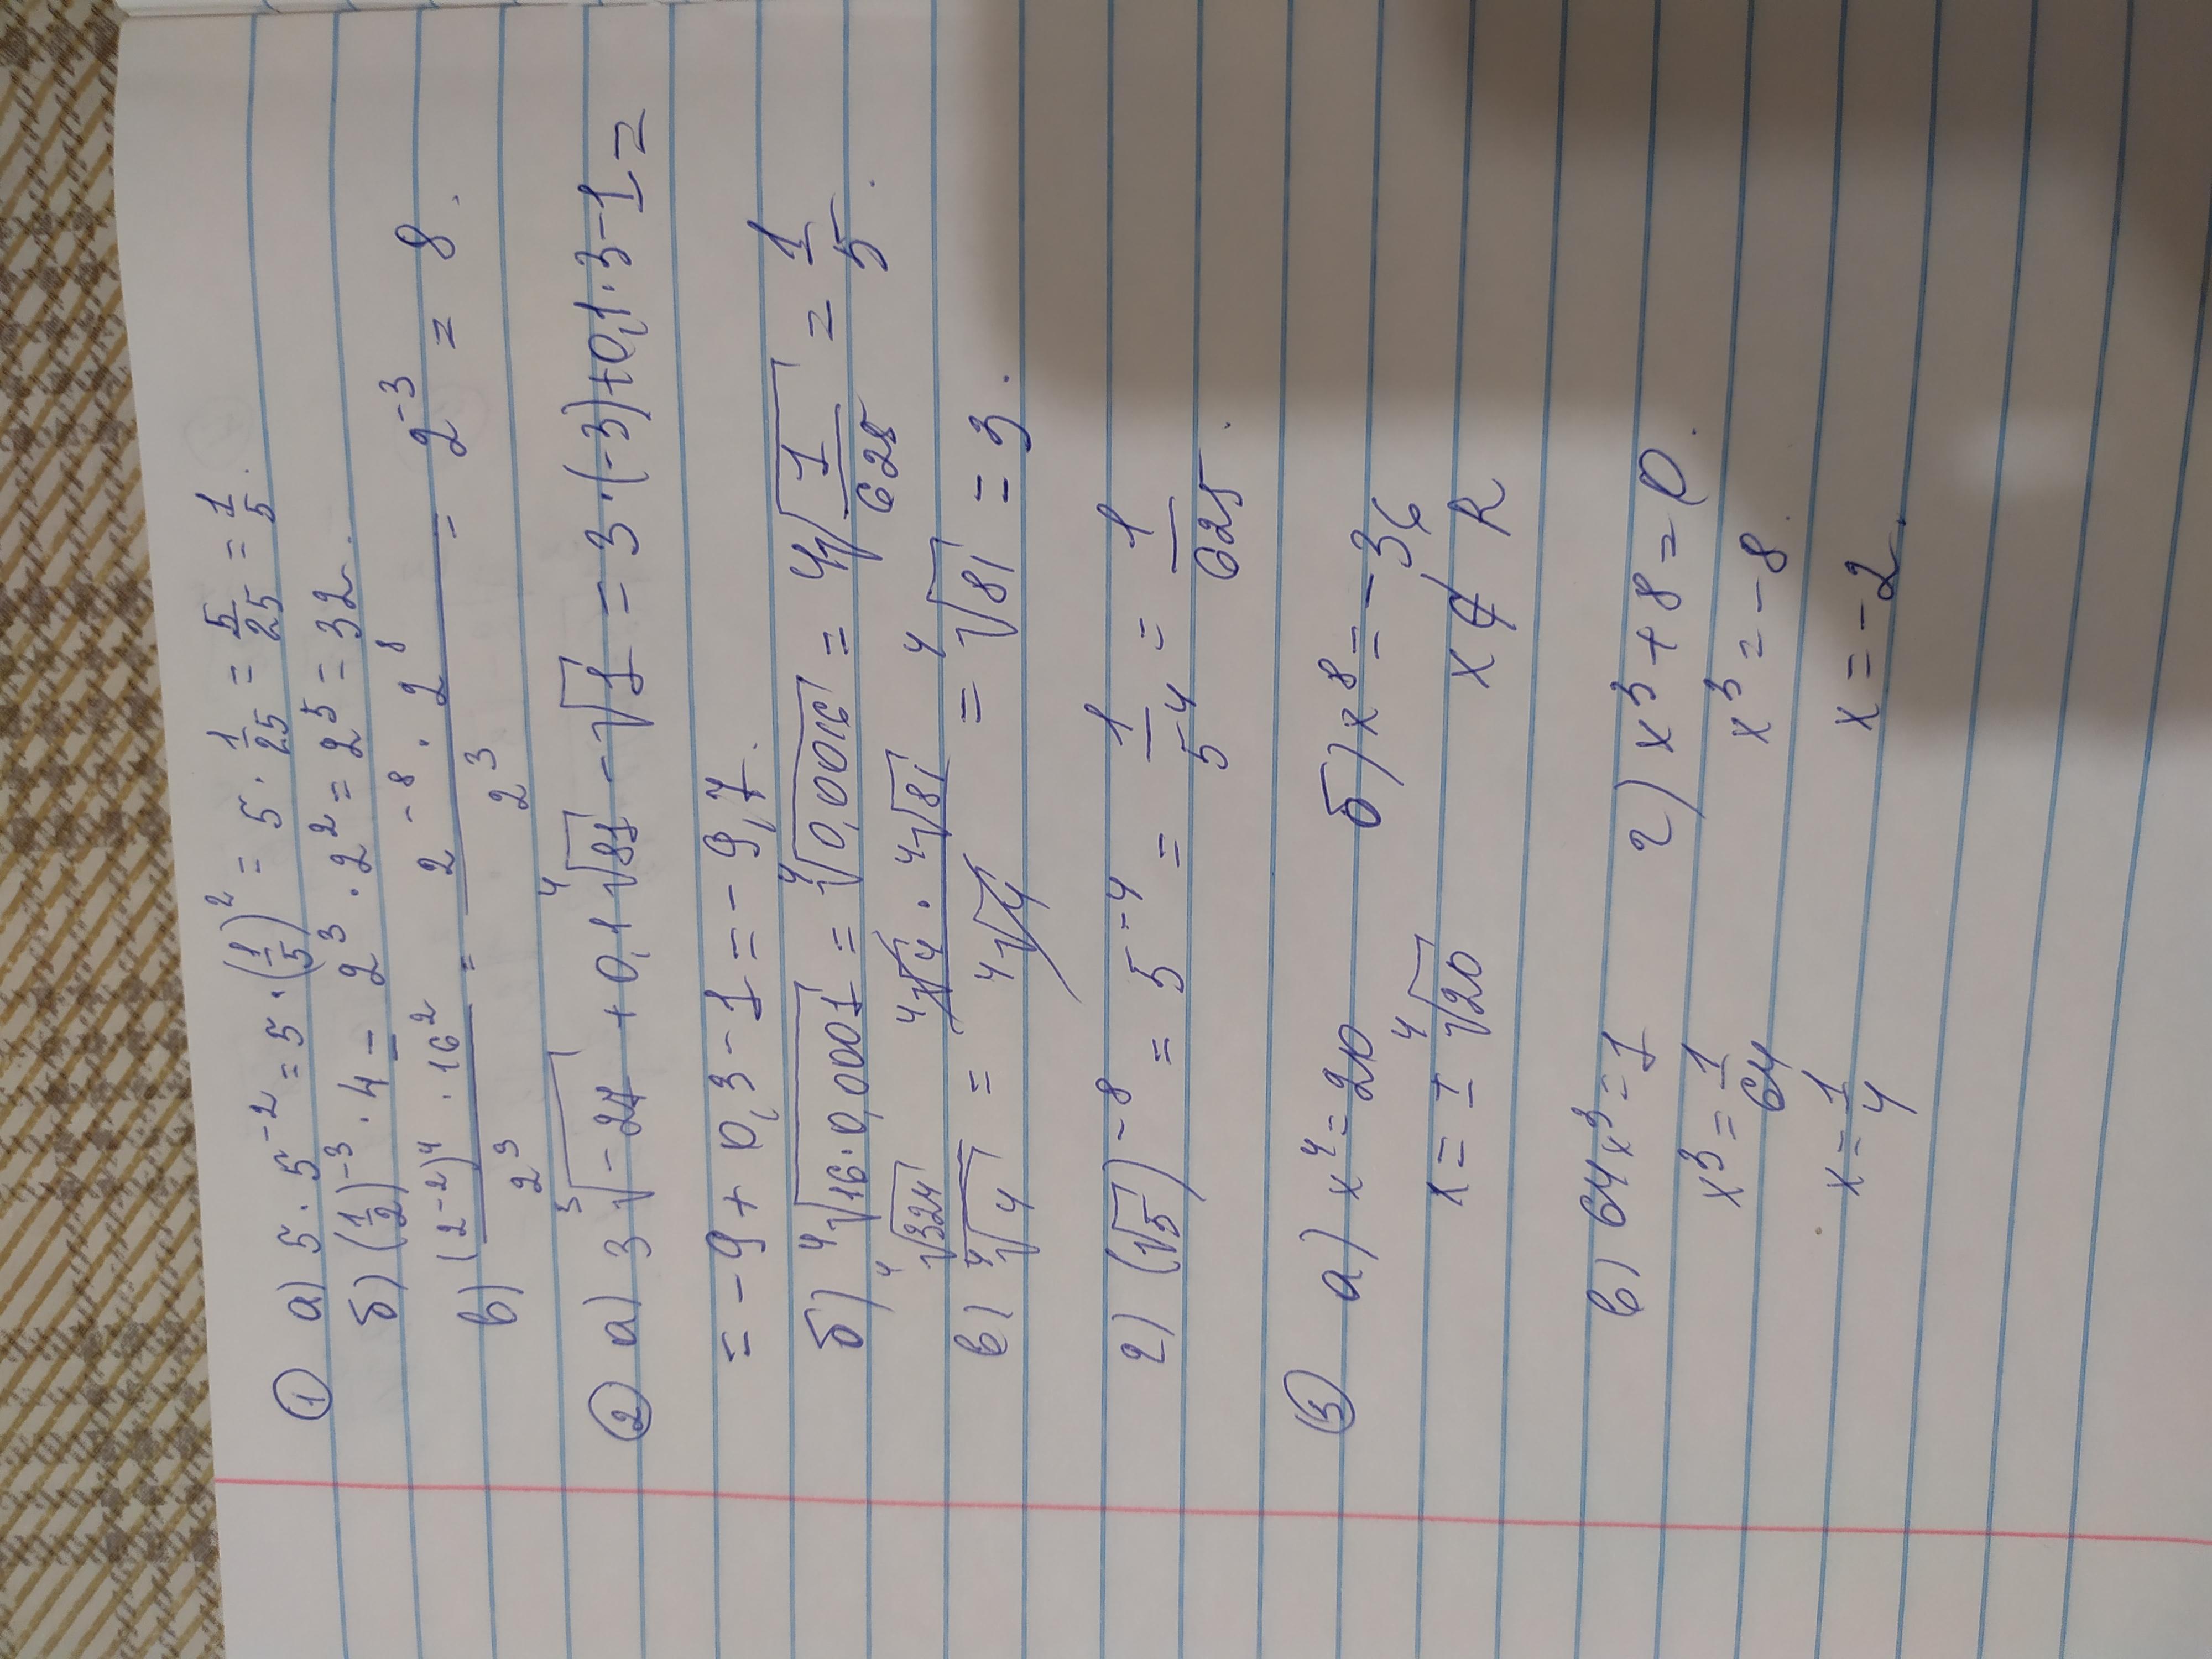 ① а) 5 · 5⁻² = 5 · (1/5)² = 5 · 1/25 = 5/25 = 1/5.
б) (1/2)⁻³ · 4 = 2³ · 2² = 2⁵ = 32.
в) (2⁻²)⁴ · 16² / 2³ = 2⁻⁸ · 2⁸ / 2³ = 2⁻³ = 8.
② а) 3 ³√-27 + 0,1 ⁴√81 - √1 = 3 · (-3) + 0,1 · 3 - 1 =
= -9 + 0,3 - 1 = -9,7.
б) ⁴√16 · 0,0001 = ⁴√0,0016 = ⁴√1/625 = 1/5.
в) ⁴√324 / ⁴√4 = ⁴√4 · ⁴√81 / ⁴√4 = ⁴√81 = 3.
г) (√5)⁻⁸ = 5⁻⁴ = 1/5⁴ = 1/625.
③ а) x⁴ = 20 б) x⁸ = -36
x = ± ⁴√20 x ∉ R
в) 64x³ = 1 г) x³ + 8 = 0.
x³ = 1/64 x³ = -8.
x = 1/4 x = -2.